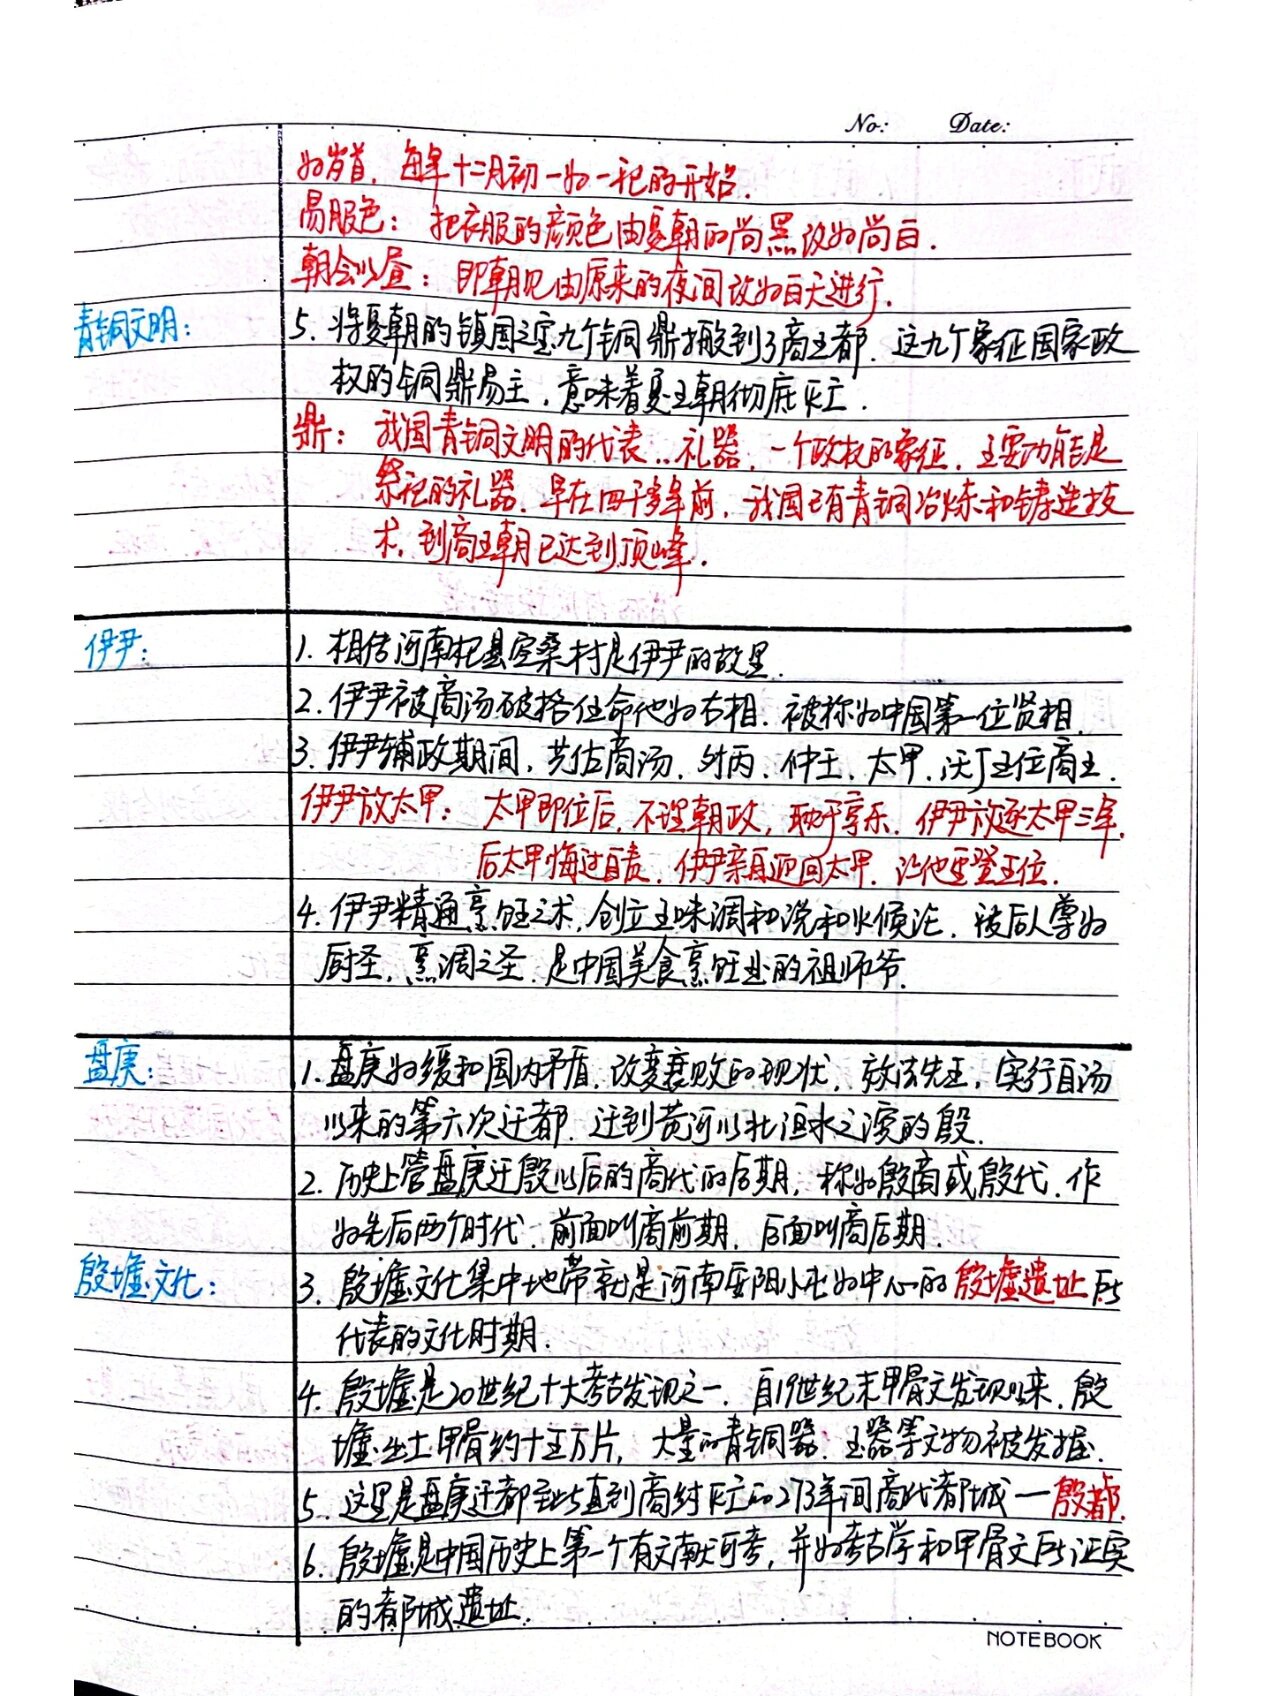 No: Date:
为岁首，每年十二月初一为一祀的开始.
易服色：把衣服的颜色由夏朝的尚黑改为尚白.
朝会以昼：即朝见由原来的夜间改为白天进行.
青铜文明：
5. 将夏朝的镇国之宝九个铜鼎搬到了商王都. 这九个象征国家政
权的铜鼎易主，意味着夏王朝彻底灭亡.
鼎：我国青铜文明的代表，礼器，一个政权的象征，主要功能是
祭祀的礼器，早在四千多年前，我国已有青铜冶炼和铸造技
术，到商王朝已达到顶峰.
伊尹：
1. 相传河南杞县空桑村是伊尹的故里.
2. 伊尹被商汤破格任命他为右相，被称为中国第一位贤相.
3. 伊尹辅政期间，共佐商汤、外丙、仲壬、太甲、沃丁五位商王.
伊尹放太甲：太甲即位后，不理朝政，耽于享乐. 伊尹放逐太甲三年.
后太甲悔过自责，伊尹亲自迎回太甲，让他重登王位.
4. 伊尹精通烹饪之术，创立五味调和说和火候论，被后人尊为
厨圣，烹调之圣，是中国美食烹饪业的祖师爷.
盘庚：
1. 盘庚为缓和国内矛盾，改变衰败的现状，效法先王，实行自汤
以来的第六次迁都，迁到黄河以北洹水之滨的殷.
2. 历史上管盘庚迁殷以后的商代的后期，称为殷商或殷代，作
为先后两个时代，前面叫商前期，后面叫商后期.
殷墟文化：
3. 殷墟文化集中地带就是河南安阳小屯为中心的殷墟遗址所
代表的文化时期.
4. 殷墟是20世纪十大考古发现之一，自19世纪末甲骨文发现以来，殷
墟出土甲骨约十五万片，大量的青铜器、玉器等文物被发掘.
5. 这里是盘庚迁都至此直到商纣灭亡的273年间商代都城—殷都.
6. 殷墟是中国历史上第一个有文献可考，并为考古学和甲骨文所证实
的都城遗址.
NOTEBOOK